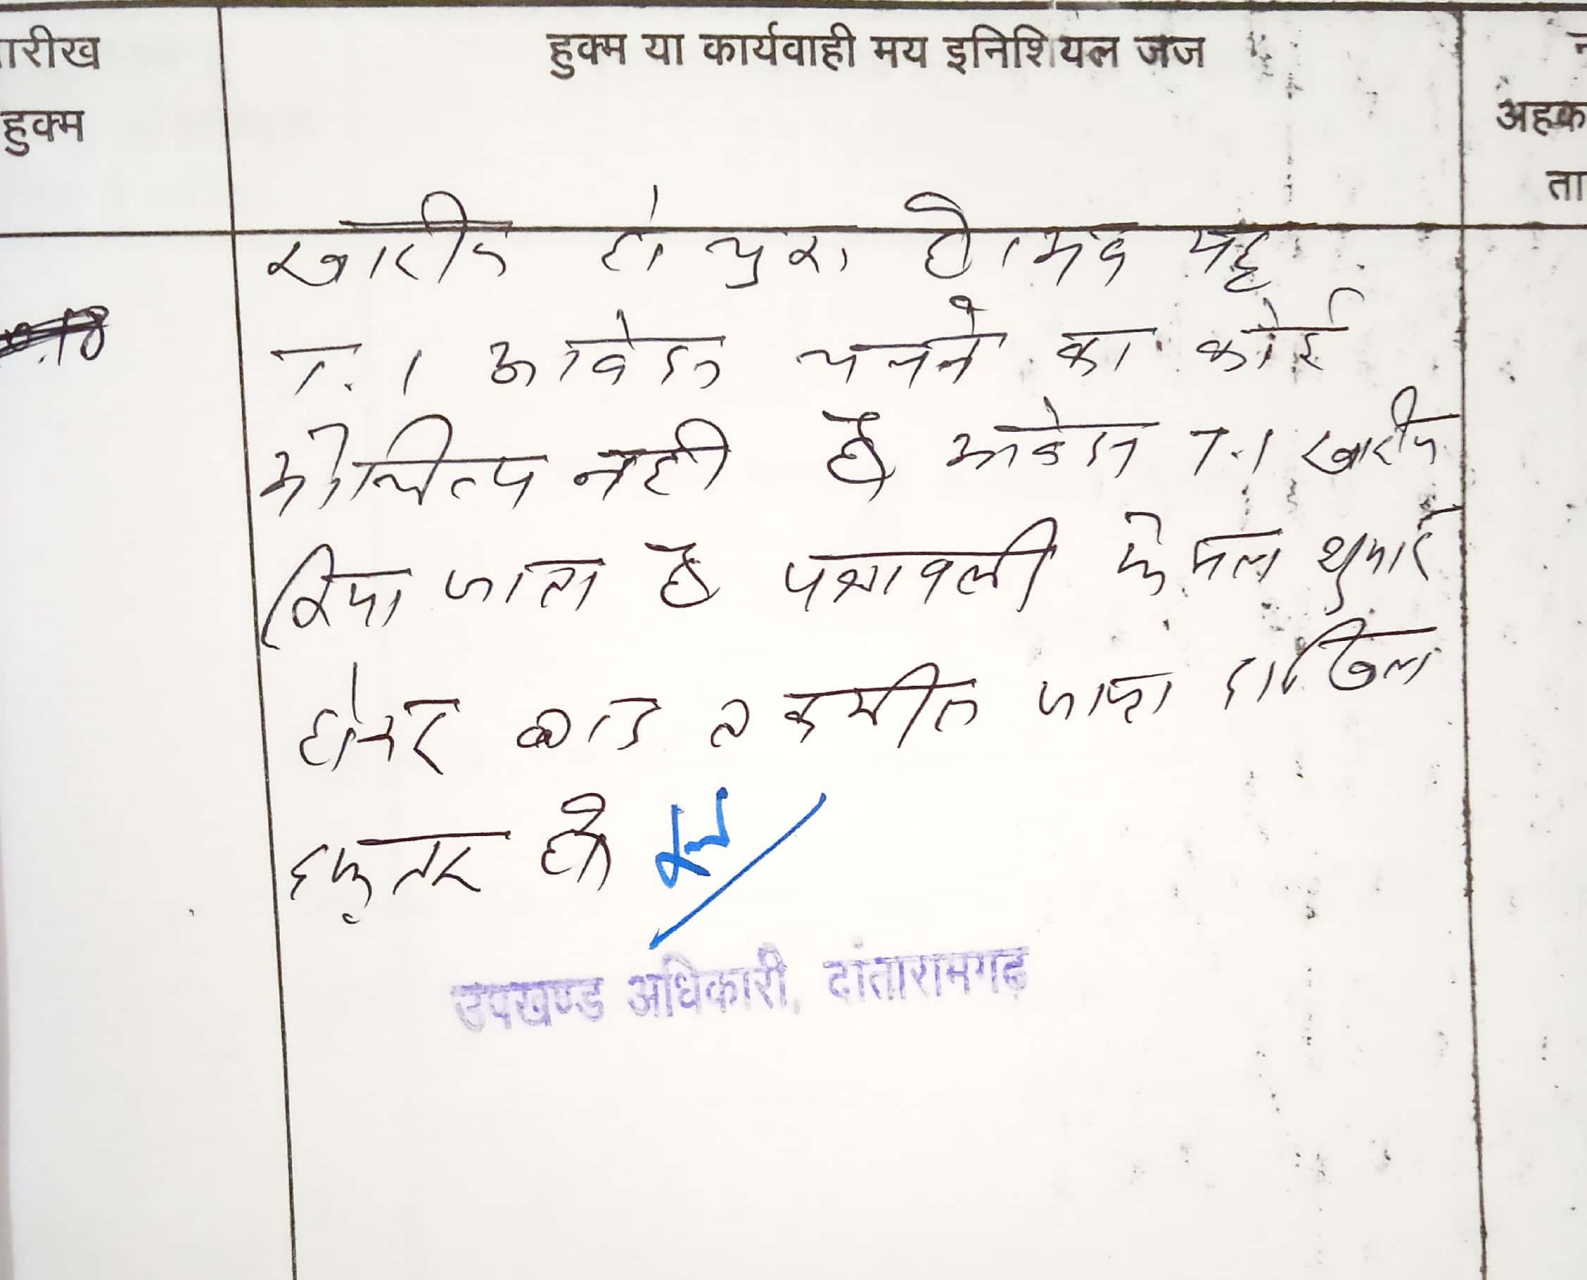 तारीख हुक्म या कार्यवाही मय इनिशियल जज
हुक्म अहक
ता
खारीज हो चुका है। अब यह
T.I आवेदन चलने का कोई
औचित्य नही है आवेदन T.I खारीज
किया जाता है पत्रावली फैसल शुमार
होकर बाद तकमील जाप्ता दाखिल
दफ्तर हो
उपखण्ड अधिकारी, दांतारामगढ़